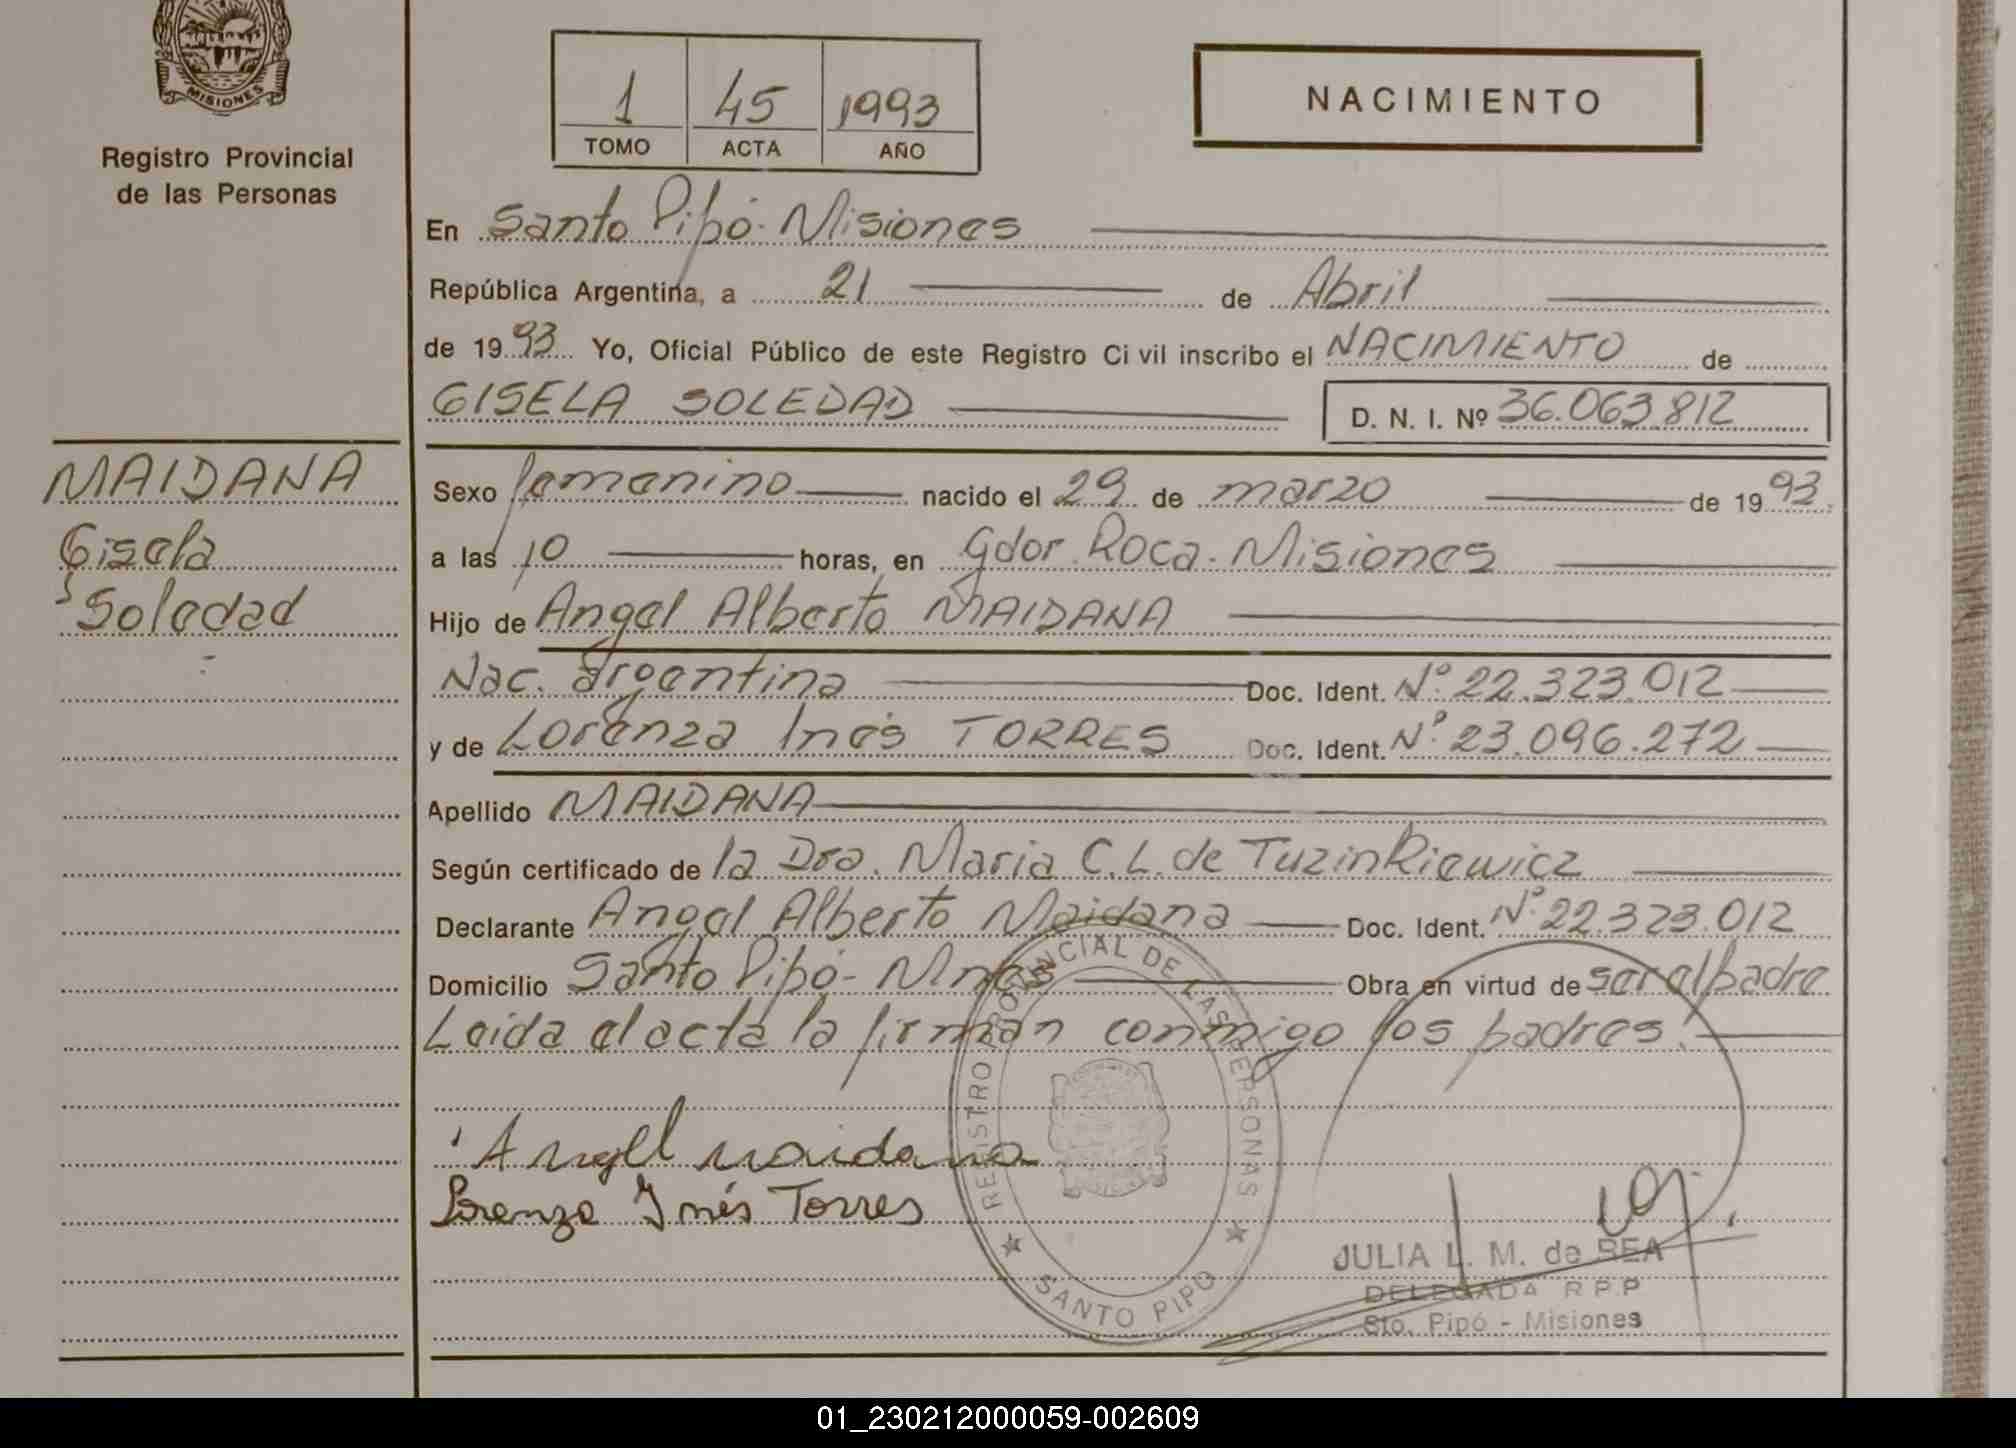 MISIONES
Registro Provincial
de las Personas
1 45 1993
TOMO ACTA AÑO
NACIMIENTO
En Santo Pipó - Misiones
República Argentina, a 21 de Abril
de 1993 Yo, Oficial Público de este Registro Ci vil inscribo el NACIMIENTO de
GISELA SOLEDAD D. N. I. Nº 36.063.812
MAIDANA
Gisela
Soledad
Sexo femenino nacido el 29 de marzo de 1993
a las 10 horas, en Gdor. Roca - Misiones
Hijo de Angel Alberto MAIDANA
Nac. argentina Doc. Ident. Nº 22.323.012
y de Lorenza Inés TORRES Doc. Ident. Nº 23.096.272
Apellido MAIDANA
Según certificado de la Dra. Maria C. L. de Tuzinkiewicz
Declarante Angel Alberto Maidana Doc. Ident. Nº 22.323.012
Domicilio Santo Pipó - Mnes Obra en virtud de ser el padre
Leida el acta la firman conmigo los padres.
Angel maidana
Lorenza Inés Torres
REGISTRO PROVINCIAL DE LAS PERSONAS
SANTO PIPO
JULIA L. M. de REA
DELEGADA R P P
Sto. Pipó - Misiones
01_230212000059-002609